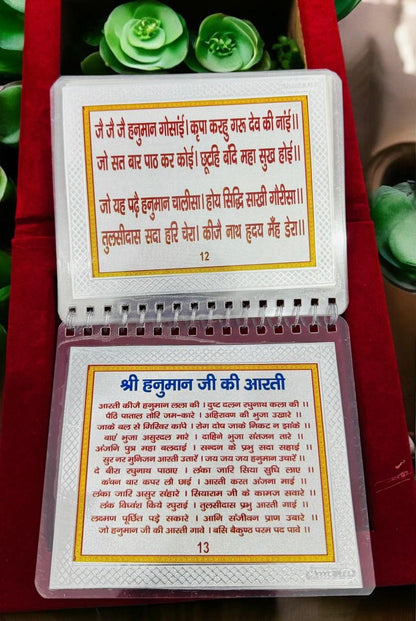 जै जै जै हनुमान गोसांई। कृपा करहु गरू देव की नांई।।
जो सत बार पाठ कर कोई। छूटहि बंदि महा सुख होई।।
जो यह पढ़ै हनुमान चालीसा। होय सिद्धि साखी गौरीसा।।
तुलसीदास सदा हरि चेरा। कीजै नाथ हृदय मँह डेरा।।
12
श्री हनुमान जी की आरती
आरती कीजै हनुमान लला की । दुष्ट दलन रघुनाथ कला की ।
पैठि पाताल तोरि जम-कारे । अहिरावण की भुजा उखारे ।।
जाके बल से गिरिवर कांपे । रोग दोष जाके निकट न झांके ।।
बाएं भुजा असुरदल मारे । दाहिने भुजा संतजन तारे ।।
अंजनि पुत्र महा बलदाई । सन्दन के प्रभु सदा सहाई ।
सुर नर मुनिजन आरती उतारें । जय जय जय हनुमान उचारें ।।
दे बीरा रघुनाथ पाठाए । लंका जारि सिया सुधि लाए ।
कंचन बार कपर लौ छाई । आरती करत अंजना माई ।
लंका जारि असुर संहारे । सियाराम जी के कामज सवारे ।
लंक विध्वंश किये रघुराई । तुलसीदास प्रभु आरती गाई ।
लक्षमण पूर्छित पड़े सकारे । आनि संजीवन प्राण उबारे ।।
जो हनुमान जी की आरती गावे । बसि बैकुण्ठ परम पद पावे ।।
13